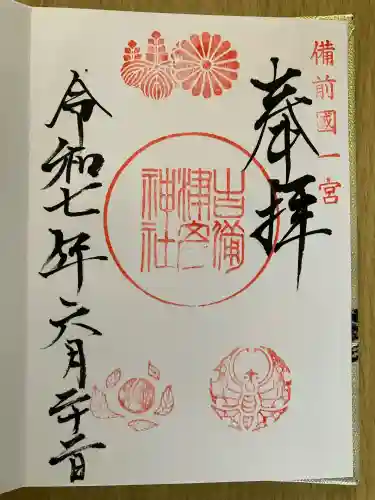 備前國一宮
奉拝
吉備
津彦
神社
令和七年六月二十二日